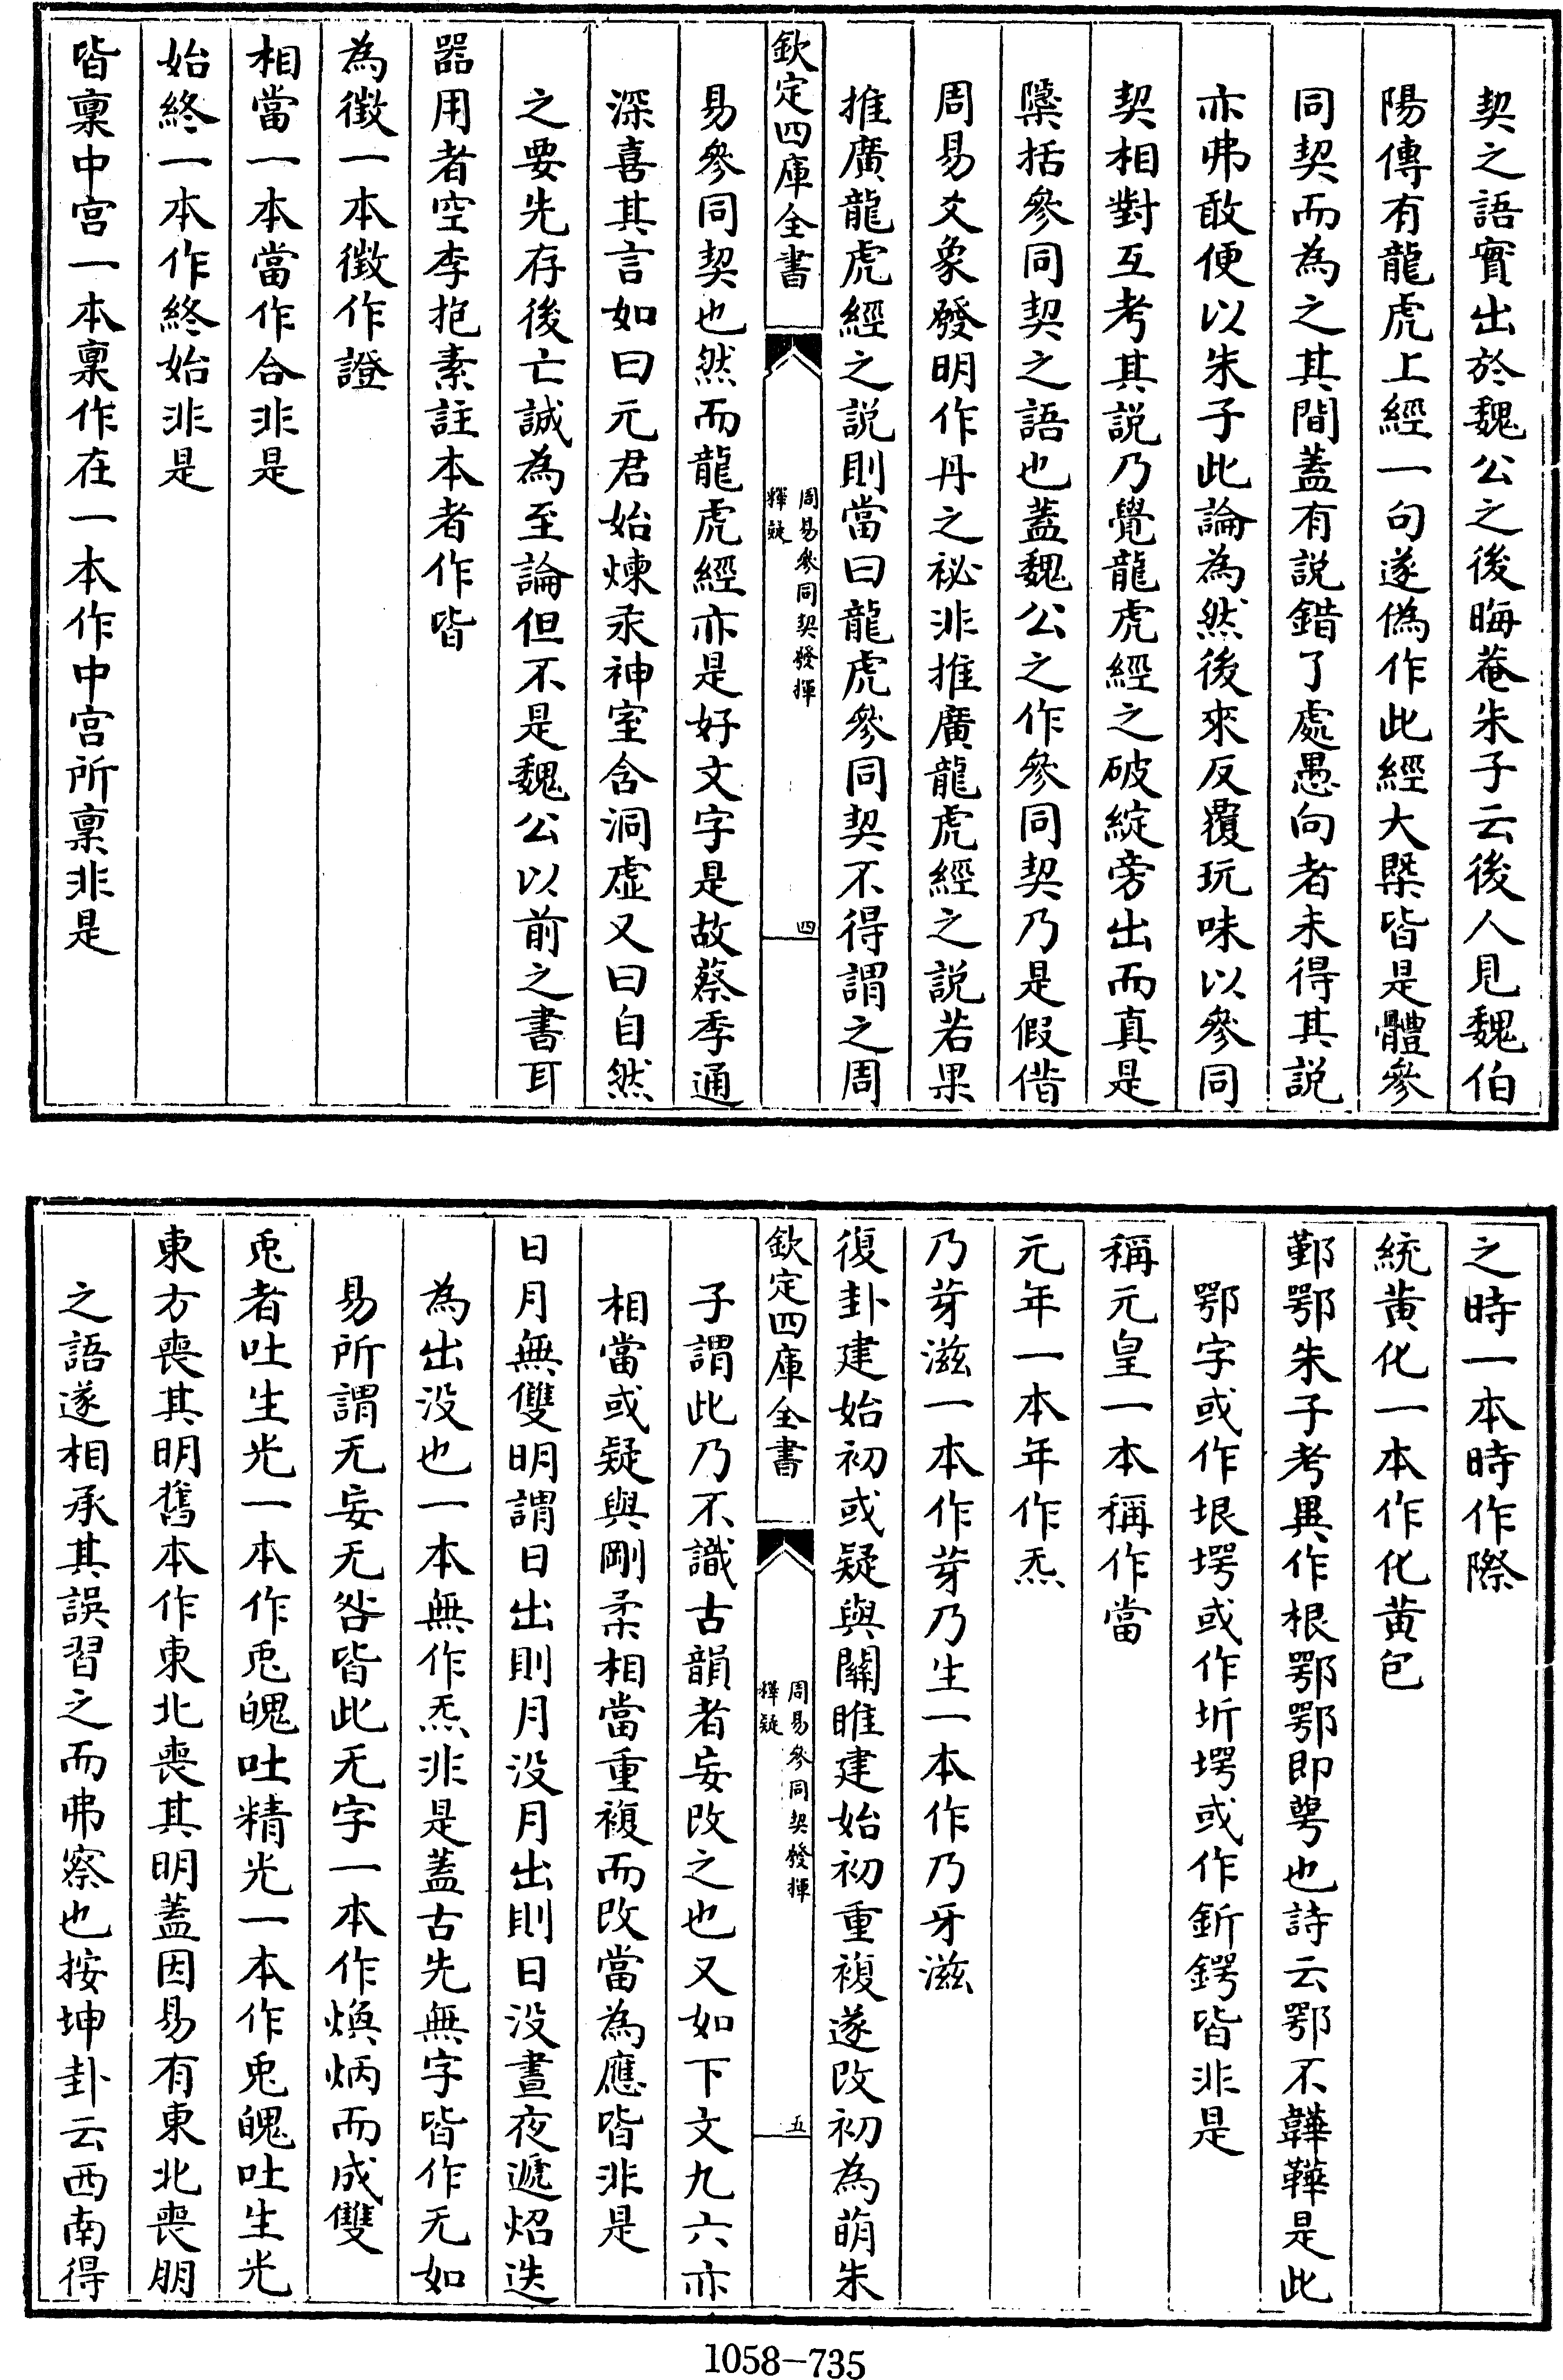 契之語實出於魏公之後晦菴朱子云後人見魏伯
陽傳有龍虎上經一句遂偽作此經大槩皆是體參
同契而為之其間蓋有説錯了處愚向者未得其説
亦弗敢便以朱子此論為然後來反覆玩味以參同
契相對互考其説乃覺龍虎經之破綻旁出而真是
檃括參同契之語也蓋魏公之作參同契乃是假借
周易爻象發明作丹之祕非推廣龍虎經之説若果
推廣龍虎經之説則當曰龍虎參同契不得謂之周
欽定四庫全書
周易參同契發揮
釋疑
四
易參同契也然而龍虎經亦是好文字是故蔡季通
深喜其言如曰元君始煉汞神室含洞虛又曰自然
之要先存後亡誠為至論但不是魏公以前之書耳
器用者空李抱素註本者作皆
為徵一本徵作證
相當一本當作合非是
始終一本作終始非是
皆稟中宫一本稟作在一本作中宫所稟非是
之時一本時作際
統黄化一本作化黄包
鄞鄂朱子考異作根鄂鄂即萼也詩云鄂不韡韡是此
鄂字或作垠堮或作圻堮或作釿鍔皆非是
稱元皇一本稱作當
元年一本年作炁
乃芽滋一本作芽乃生一本作乃牙滋
復卦建始初或疑與關雎建始初重複遂改初為萌朱
欽定四庫全書
周易參同契發揮
釋疑
五
子謂此乃不識古韻者妄改之也又如下文九六亦
相當或疑與剛柔相當重複而改當為應皆非是
日月無雙明謂日出則月没月出則日没晝夜遞炤迭
為出没也一本無作炁非是蓋古先無字皆作无如
易所謂无妄无咎皆此无字一本作煥炳而成雙
兎者吐生光一本作兎魄吐精光一本作兎魄吐生光
東方喪其明舊本作東北喪其明蓋因易有東北喪朋
之語遂相承其誤習之而弗察也按坤卦云西南得
1058-735